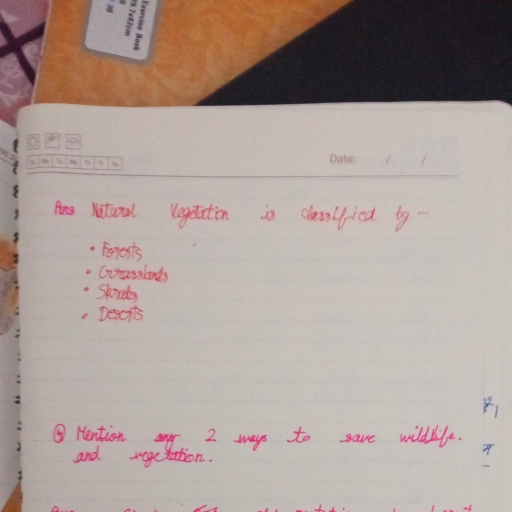 Exercise Book
Date: / /
Ans Natural Vegetation is classified by -
• Forests
• Grasslands
• Shrubs
• Deserts
Mention any 2 ways to save wildlife.
and vegetation.